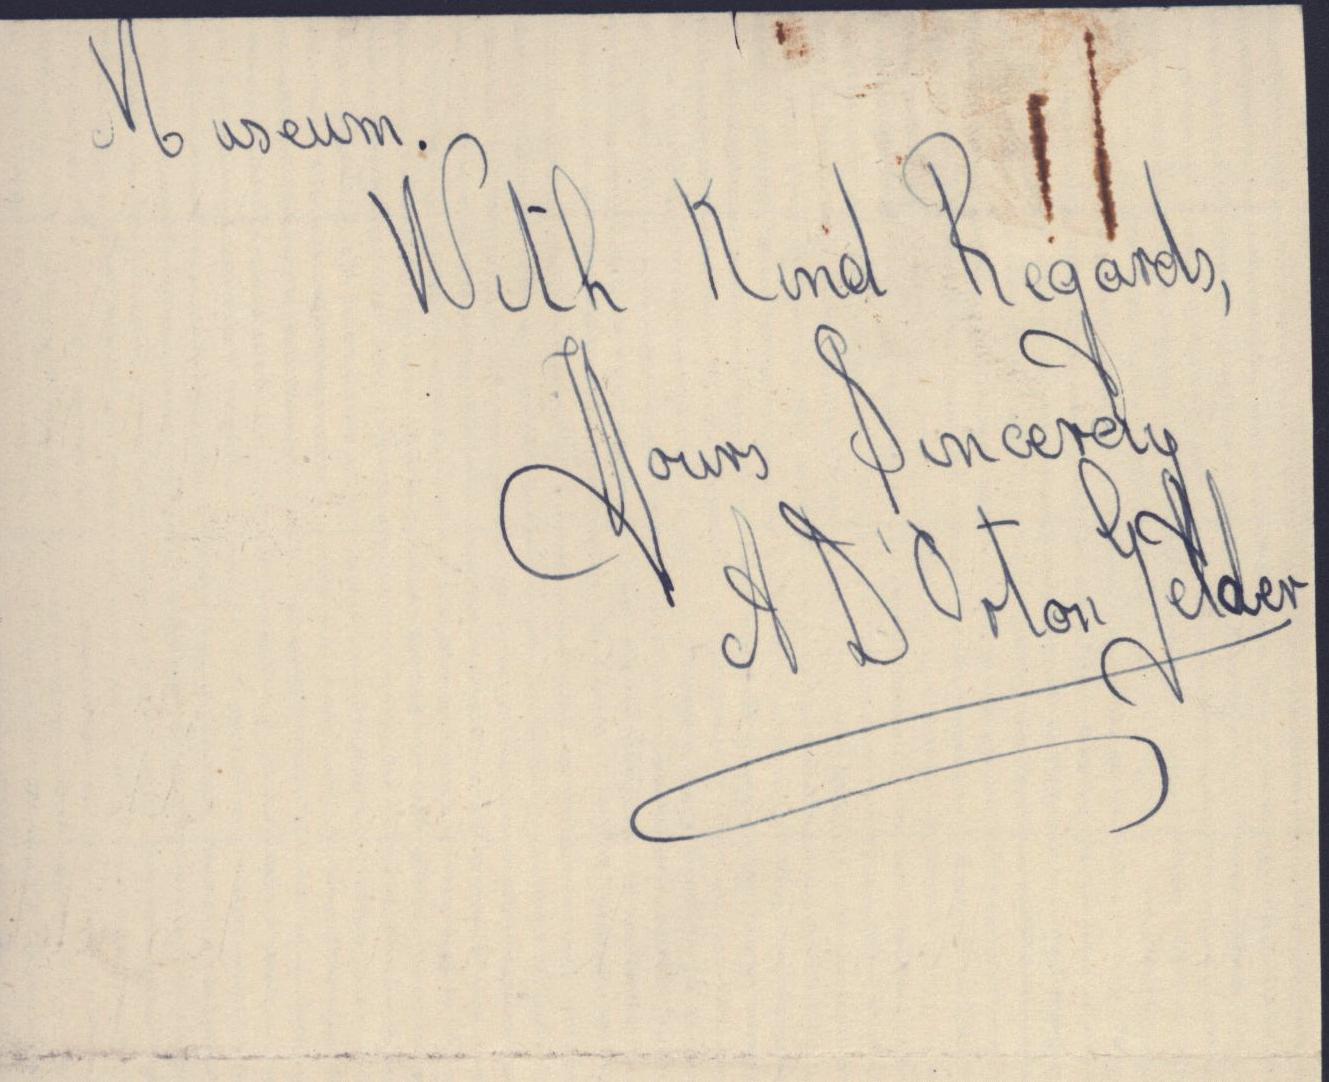 Museum.
With Kind Regards,
Yours Sincerely
A D'Orton Gelder